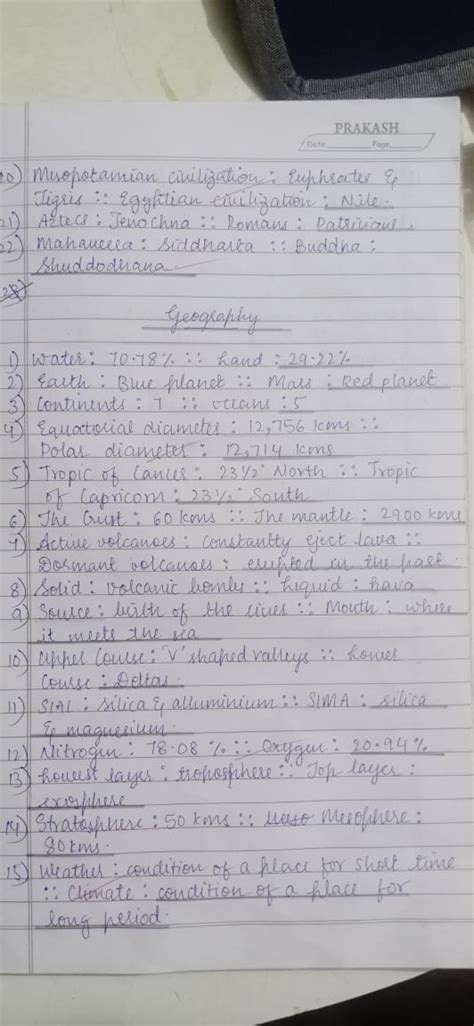 PRAKASH
Date Page
20) Mesopotamian civilization : Euphrates &
Tigris :: Egyptian civilization : Nile.
21) Aztecs : Tenochna :: Romans : Patricians
22) Mahaveera : Siddharta :: Buddha :
Shuddodhana
Geography
1) Water : 70.78% :: Land : 29.22%
2) Earth : Blue planet :: Mars : Red planet
3) Continents : 7 :: oceans : 5
4) Equatorial diameter : 12,756 kms ::
Polar diameter : 12,714 kms
5) Tropic of Cancer : 23 1/2° North :: Tropic
of Capricorn : 23 1/2° South
6) The Crust : 60 kms :: The mantle : 2900 kms
7) Active volcanoes : constantly eject lava ::
Dormant volcanoes : erupted in the past.
8) Solid : volcanic bombs :: Liquid : Lava
9) Source : birth of the river :: Mouth : where
it meets the sea
10) Upper Course : 'V' shaped valleys :: Lower
Course : Deltas
11) SIAL : Silica & alluminium :: SIMA : silica
& magnesium.
12) Nitrogen : 78.08 % :: Oxygen : 20.94%
13) Lowest layer : troposphere :: Top layer :
exosphere
14) Stratosphere : 50 kms :: Mesosphere :
80 kms.
15) Weather : condition of a place for short time
:: Climate : condition of a place for
long period.